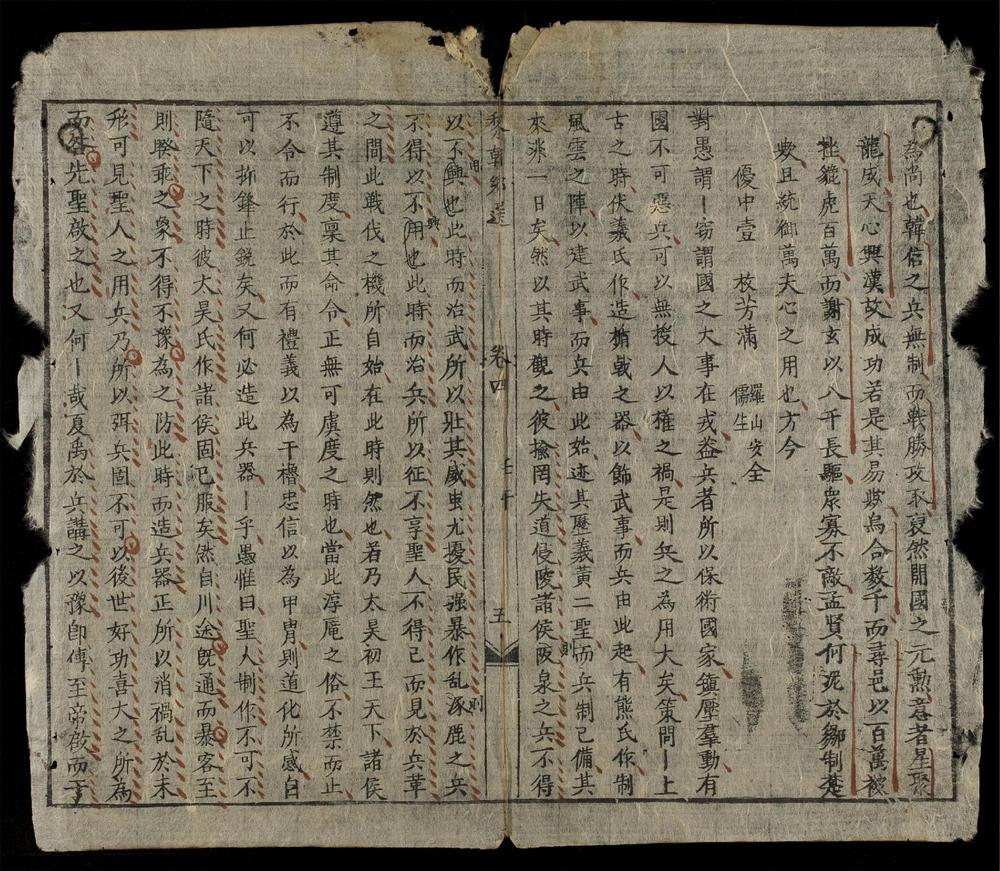 為尚也韓信之兵無制而戰勝攻取寂然開國之元勳意者星聚
龍成天心興漢故成功若是其易歟烏合数千而尋邑以百萬被
貔虎百萬而謝玄以八千長驅衆寡不敵孟賢何泥於鄒制楚
歟且統御萬夫心之用也方今
優中壹 枚芳滿 羅山安全
儒生
對愚謂〡窃謂國之大事在戎盖兵者所以保術國家鎮壓羣動有
國不可惡兵可以無授人以權之禍是則兵之為用大矣策問〡上
古之時伏羲氏作造楯戟之器以飾武事而兵由此起有熊氏作制
風雲之陣以建武事而兵由此始迹其歷羲黃二聖而兵制已備其
來非一日矣然以其時觀之彼揄罔失道侵陵諸侯阪泉之兵不得
則
黎朝鄉選 卷四 壬午 五
以不興也此時而治武所以壯其威虫尤擾民强暴作乱涿鹿之兵
用 則
不得以不用也此時而治兵所以征不享聖人不得已而見於兵革
興
之間此戰伐之機所自始在此時則然也若乃太昊初王天下諸侯
遵其制度稟其命令正無可虞度之時也當此淳厖之俗不禁而止
不令而行於此而有禮義以為干櫓忠信以為甲冑則道化所感自
可以抑鋒止銳矣又何必造此兵器〡乎愚惟曰聖人制作不可不
隨天下之時彼太昊氏作諸侯固已服矣然自川途既通而暴客至
則睽乖之象不得不豫為之防此時而造兵器正所以消禍乱於未
形可見聖人之用兵乃所以弭兵固不可以後世好功喜大之所為
而咎先聖啟之也又何〡哉夏禹於兵講之以豫即傳至帝啟而于